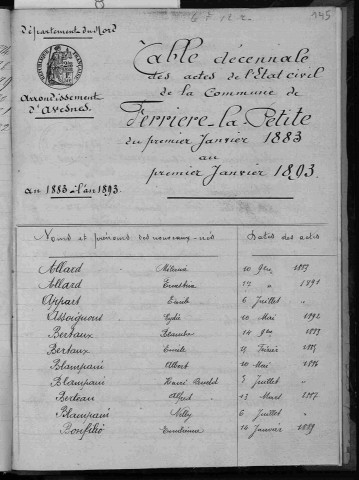 145
Département du Nord
Table décennale
des actes de l'Etat civil
Arrondissement
d'Avesnes
de la Commune de
Ferriere-la-Petite
du premier Janvier 1883
au
premier Janvier 1893.
an 1883 à l'an 1893.
Noms et prénoms des nouveaux-nés Dates des actes
Allard 10 9bre 1883
Allard Ernestine 17 " 1891
Appart Emile 6 Juillet "
Assoignons Eydie 10 Mai 1892
Bertaux 14 9bre 1883
Bertaux Emile 9 Février 1885
Blampain Albert 10 Mai 1886
Blampain Henri 5 Juillet "
Berteau Alfred 13 Mars 1887
Blampain Nelly 6 Juillet "
Bonfilio 14 Janvier 1889